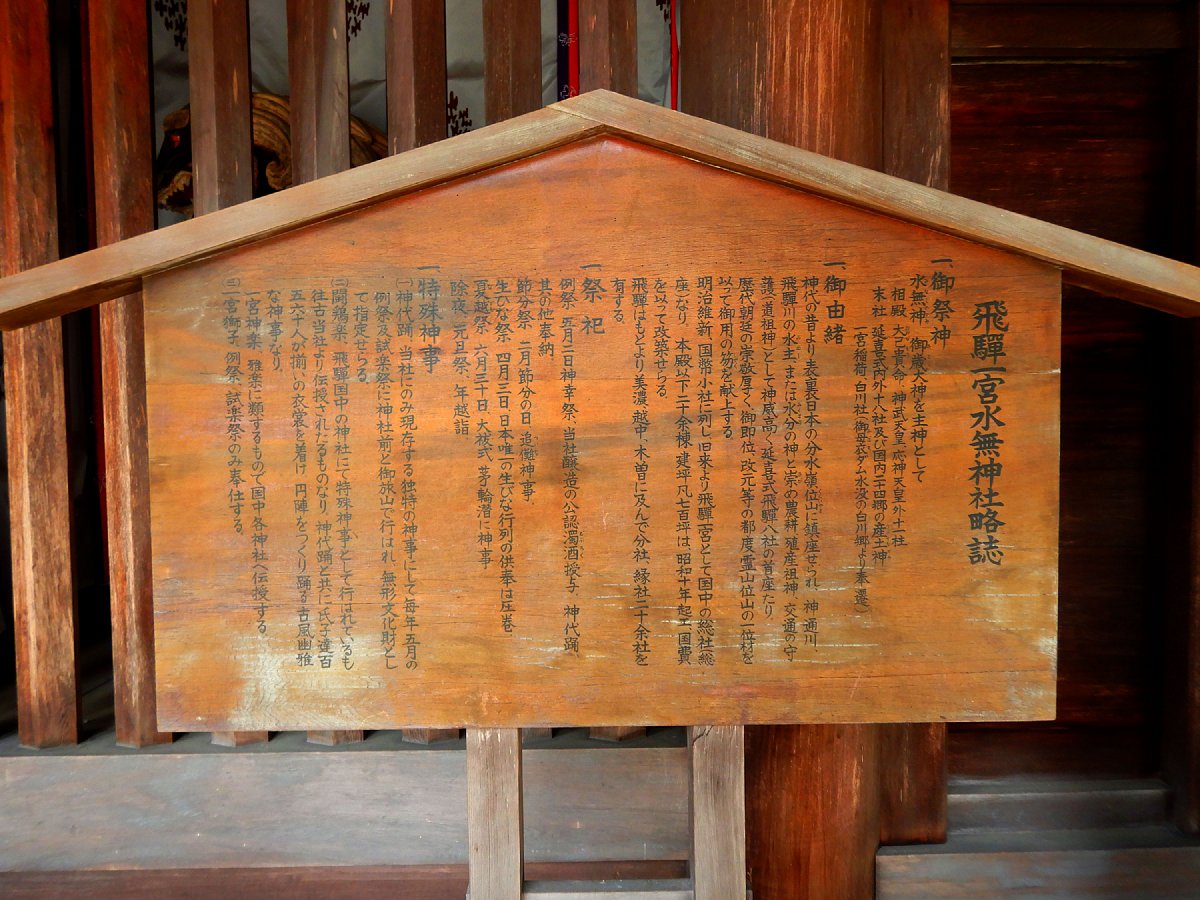 飛騨一宮水無神社略誌
一、御祭神
水無神、御歳大神を主神として
相殿 大己貴命、神武天皇、応神天皇外十一柱
末社 延喜式内外十八社及び国内二十四郷の産土神
一宮稲荷(白川社)(御母衣ダム水没の白川郷より奉遷)
一、御由緒
神代の昔より表裏日本の分水嶺位山に鎮座せられ、神通川、
飛騨川の水主、または水分の神と崇め農耕、殖産祖神、交通の守
護(道祖神)として神威高く延喜式飛騨八社の首座たり、
歴代朝廷の崇敬厚く御即位、改元等の都度霊山位山の一位材を
以って御用の笏を献上する。
明治維新、国幣小社に列し旧来より飛騨一宮として国中の総社(総
座)なり、本殿以下二十余棟、建坪凡七百坪は、昭和十年起工、国費
を以って改築せらる。
飛騨はもとより美濃、越中、木曽に及んで分社、縁社二十余社を
有する。
一、祭祀
例祭 五月二日神幸祭、当社醸造の公認濁酒授与、神代踊、
其の他奉納。
節分祭 二月節分の日 追儺神事
生びな祭 四月三日、日本唯一の生びな行列の供奉は圧巻
夏越祭 六月三十日、大祓式、茅輪潜に神事
除夜、元旦祭、年越詣
一、特殊神事
(一)神代踊、当社にのみ現存する独特の神事にして毎年五月の
例祭及試楽祭に神社前と御旅山で行はれ、無形文化財とし
て指定せらる。
(二)闘鶏楽、飛騨国中の神社にて特殊神事として行はれているも
往古当社より伝授されたるものなり、神代踊と共に氏子達百
五六十人が揃いの衣裳を着け、円陣をつくり踊る古風幽雅
な神事なり。
一宮神楽、雅楽に類するもので国中各神社へ伝授する
(三)一宮獅子、例祭、試楽祭のみ奉仕する。